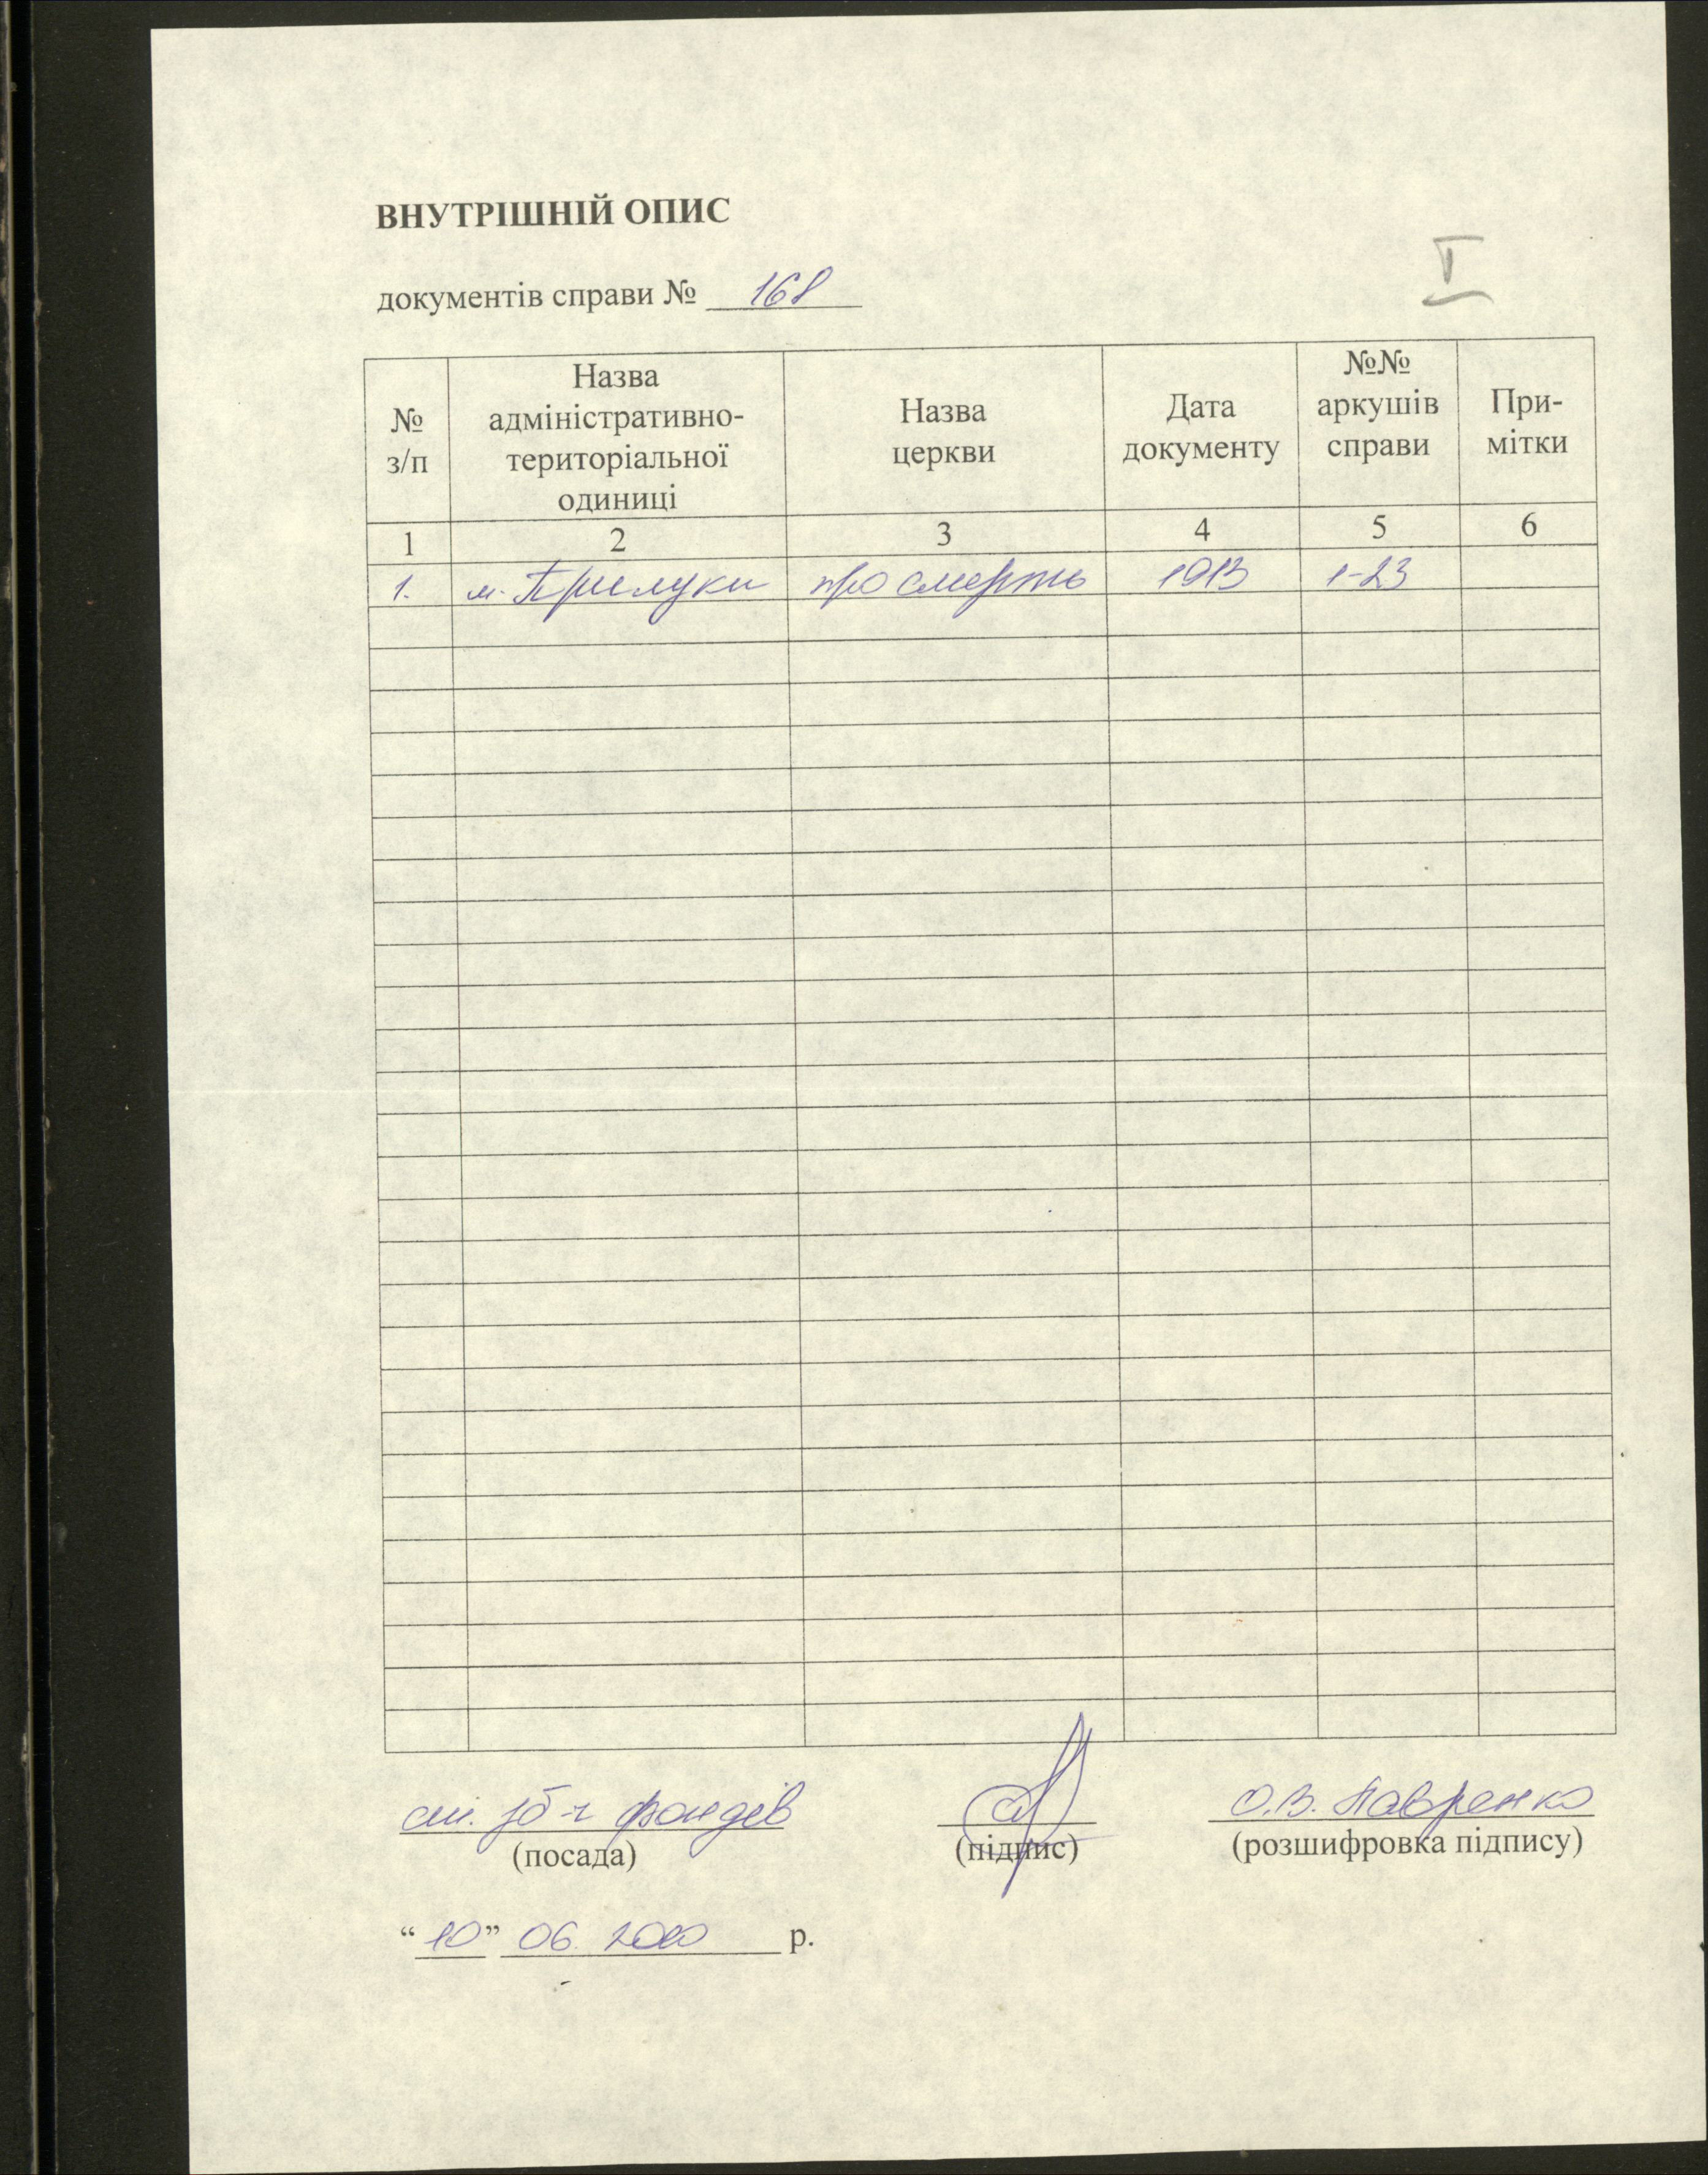 ВНУТРІШНІЙ ОПИС
документів справи № 168
I
№ з/п
Назва адміністративно-територіальної одиниці
Назва церкви
Дата документу
№№ аркушів справи
При-мітки
1 2 3 4 5 6
1. м. Прилуки про смерть 1913 1-23
ст. зб-ч фондів
О.В. Лавренко
(посада) (підпис) (розшифровка підпису)
“10” 06. 2010 р.